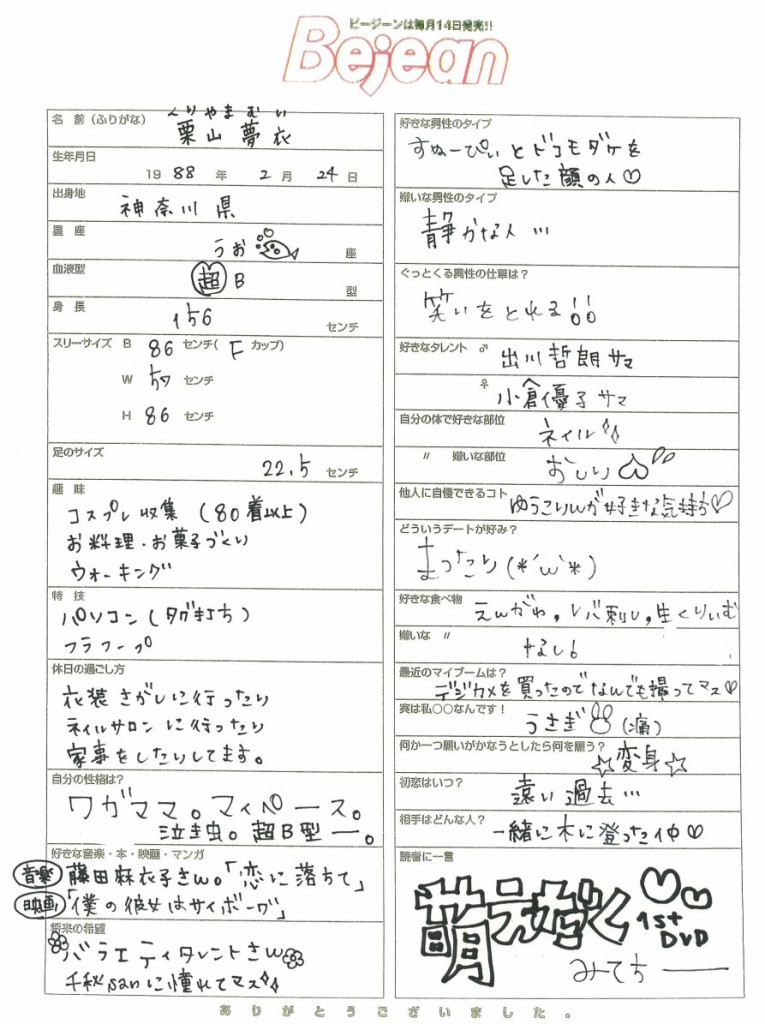 ビージーンは毎月14日発売!!
Bejean
名 前 (ふりがな) くりやまむい
栗山夢衣
生年月日
1988年 2月 24日
出身地
神奈川県
星 座
うお 座
血液型
超B 型
身 長
156 センチ
スリーサイズ B 86 センチ( F カップ)
W 57 センチ
H 86 センチ
足のサイズ
22.5 センチ
趣 味
コスプレ収集 (80着以上)
お料理・お菓子づくり
ウォーキング
特 技
パソコン(タグ打ち)
フラフープ
休日の過ごし方
衣装さがしに行ったり
ネイルサロンに行ったり
家事をしたりしてます。
自分の性格は?
ワガママ。マイペース。
泣き虫。超B型ー。
好きな音楽・本・映画・マンガ
音楽 藤田麻衣子さん。「恋に落ちて」
映画 「僕の彼女はサイボーグ」
将来の希望
バラエティタレントさん
千秋sanに憧れてマス
好きな男性のタイプ
すぬーぴぃとドコモダケを
足した顔の人♡
嫌いな男性のタイプ
静かな人…
ぐっとくる異性の仕草は?
笑いをとれる!!
好きなタレント ♂ 出川哲朗サマ
♀ 小倉優子サマ
自分の体で好きな部位 ネイル
〃 嫌いな部位 おしり
他人に自慢できるコト ゆうこりんが好きな気持ち♡
どういうデートが好み?
まったり(*´ω`*)
好きな食べ物 えんがわ,レバ刺し,生くりぃむ
嫌いな 〃 なし!
最近のマイブームは?
デジカメを買ったのでなんでも撮ってマス♡
実は私○○なんです!
うさぎ(痛)
何か一つ願いがかなうとしたら何を願う?
☆変身☆
初恋はいつ?
遠い過去…
相手はどんな人?
一緒に木に登った仲♡
読者に一言
1st
DVD
みてちー
ありがとうございました。